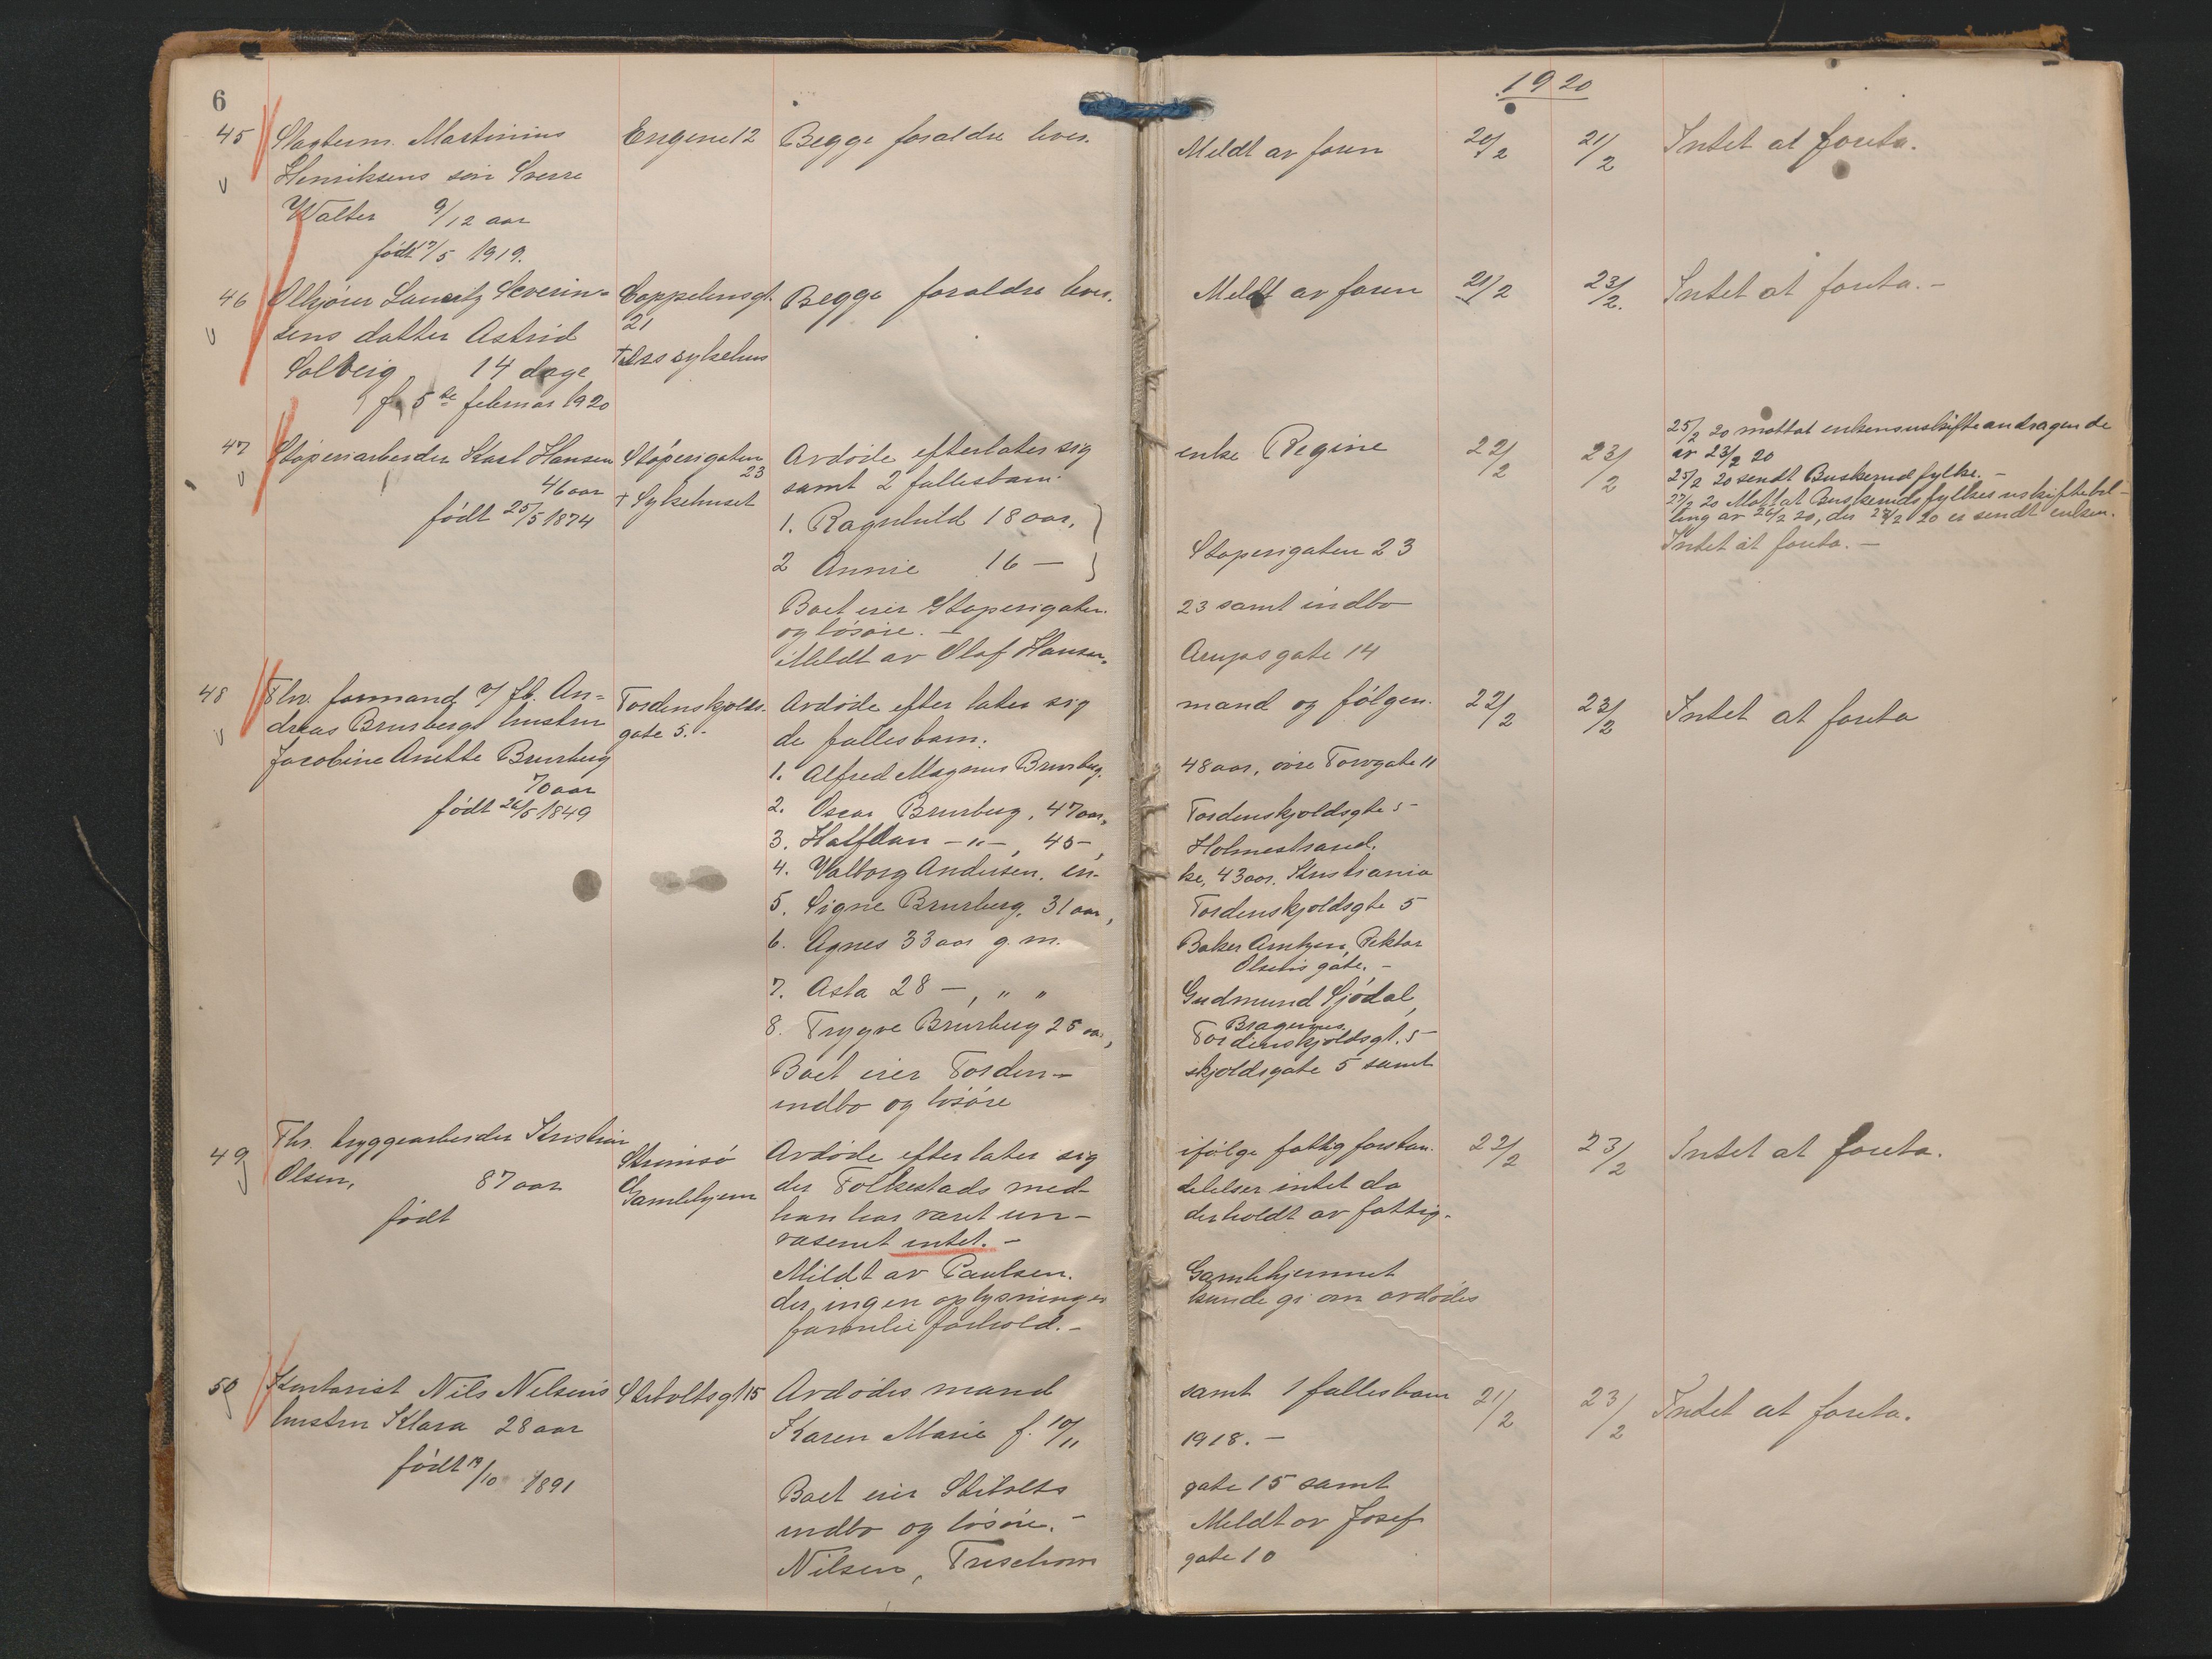 6
1920
45 Martinius Engene 12 Begge foraldre lever. Meldt av faren 20/2 21/2 Intet at foreta.
Henriksens søn Sverre
Walter 9/12 aar
født 17/5 1919.
46 Ølkjører Lauritz Severin- Cappelensgt. Begge foraldre lever. Meldt av faren 21/2 23/2. Intet at foreta. -
sens datter Astrid 21
Solveig 14 dage sykehus
f. 5te februar 1920
25/2 20 mottat enkens uskifteandragende
47 Støperiarbeider Karl Hansen Støperigaten Avdøde efterlater sig enke Regine 22/2 23/2 av 23/2 20
46 aar 23 samt 2 fallesbarn. 25/2 20 sendt Buskerud fylke. -
født 25/5 1874 + Sykehuset 27/2 20 Mottat Buskeruds fylkes uskiftebil-
1. Ragnhild 18 aar, ling av 26/2 20, der 27/2 20 er sendt enken.
Støperigaten 23 Intet at foreta. -
2 Annie 16 -
Boet eier Støperigaten 23 samt indbo
og løsøre. -
Meldt av Olaf Hansen, Arupsgate 14
48 Fhv. formand v/ Jb. An- Tordenskjolds- Avdøde efterlater sig mand og følgen. 22/2 23/2 Intet at foreta
dreas Brurbergs hustru gate 5. - de fallesbarn:
Jacobine Anette Brurberg 1. Alfred Magnus Brurberg. 48 aar, øvre Torvgate 11
70 aar
født 26/5 1849 2. Oscar Brurberg, 47 aar, Tordenskjoldsgte 5
3. Halfdan -"-, 45 -, Holmestrand.
4. Valborg Andersen, en- ke, 43 aar. Kristiania
5. Signe Brurberg, 31 aar, Tordenskjoldsgte 5
6. Agnes 33 aar g. m. Baker Arntzen, Rektor
Olsens gate. -
7. Asta 28 -, " " Gudmund Sjødal,
Bragernes
8. Trygve Brurberg 25 aar, Tordenskjoldsgt. 5
Boet eier Torden- skjoldsgate 5 samt
indbo og løsøre
49 Fhv. bryggearbeider Kristian Strømsø Avdøde efterlater sig ifølge fattigforstan. 22/2 23/2 Intet at foreta.
Olsen, 87 aar Gamlehjem der Folkestads med- delelser intet da
født han har været un- derholdt av fattig-
vasenet intet. -
Meldt av Paulsen. Gamlehjemmet
der ingen oplysninger kunde gi om avdødes
familieforhold. -
50 Kontorist Nils Nelsens Stiboltsgt 15 Avdødes mand samt 1 fallesbarn 21/2 23/2 Intet at foreta.
hustru Klara 28 aar Karen Marie f. 10/11 1918. -
født 19/10 1891
Boet eier Stibolts gate 15 samt
indbo og løsøre. - Meldt av Josef
Nilsen, gate 10